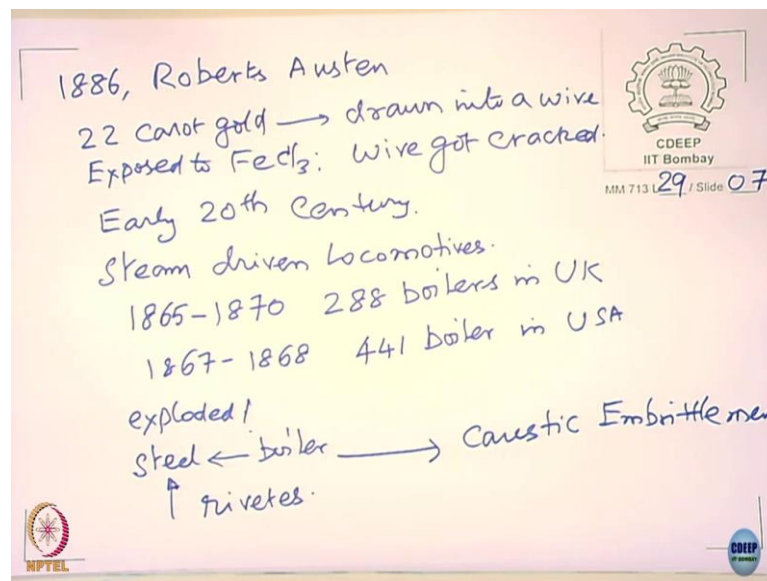 1886, Roberts Austen
22 Carot gold → drawn into a wire
Exposed to FeCl3: Wire got cracked.
Early 20th Century.
Steam driven Locomotives.
1865-1870 288 boilers in UK
1867-1868 441 boiler in USA
exploded!
Steel ← boiler → Caustic Embrittlemen
↑ rivetes.
CDEEP
IIT Bombay
MM 713 L29 / Slide 07
NPTEL
CDEEP
IIT BOMBAY